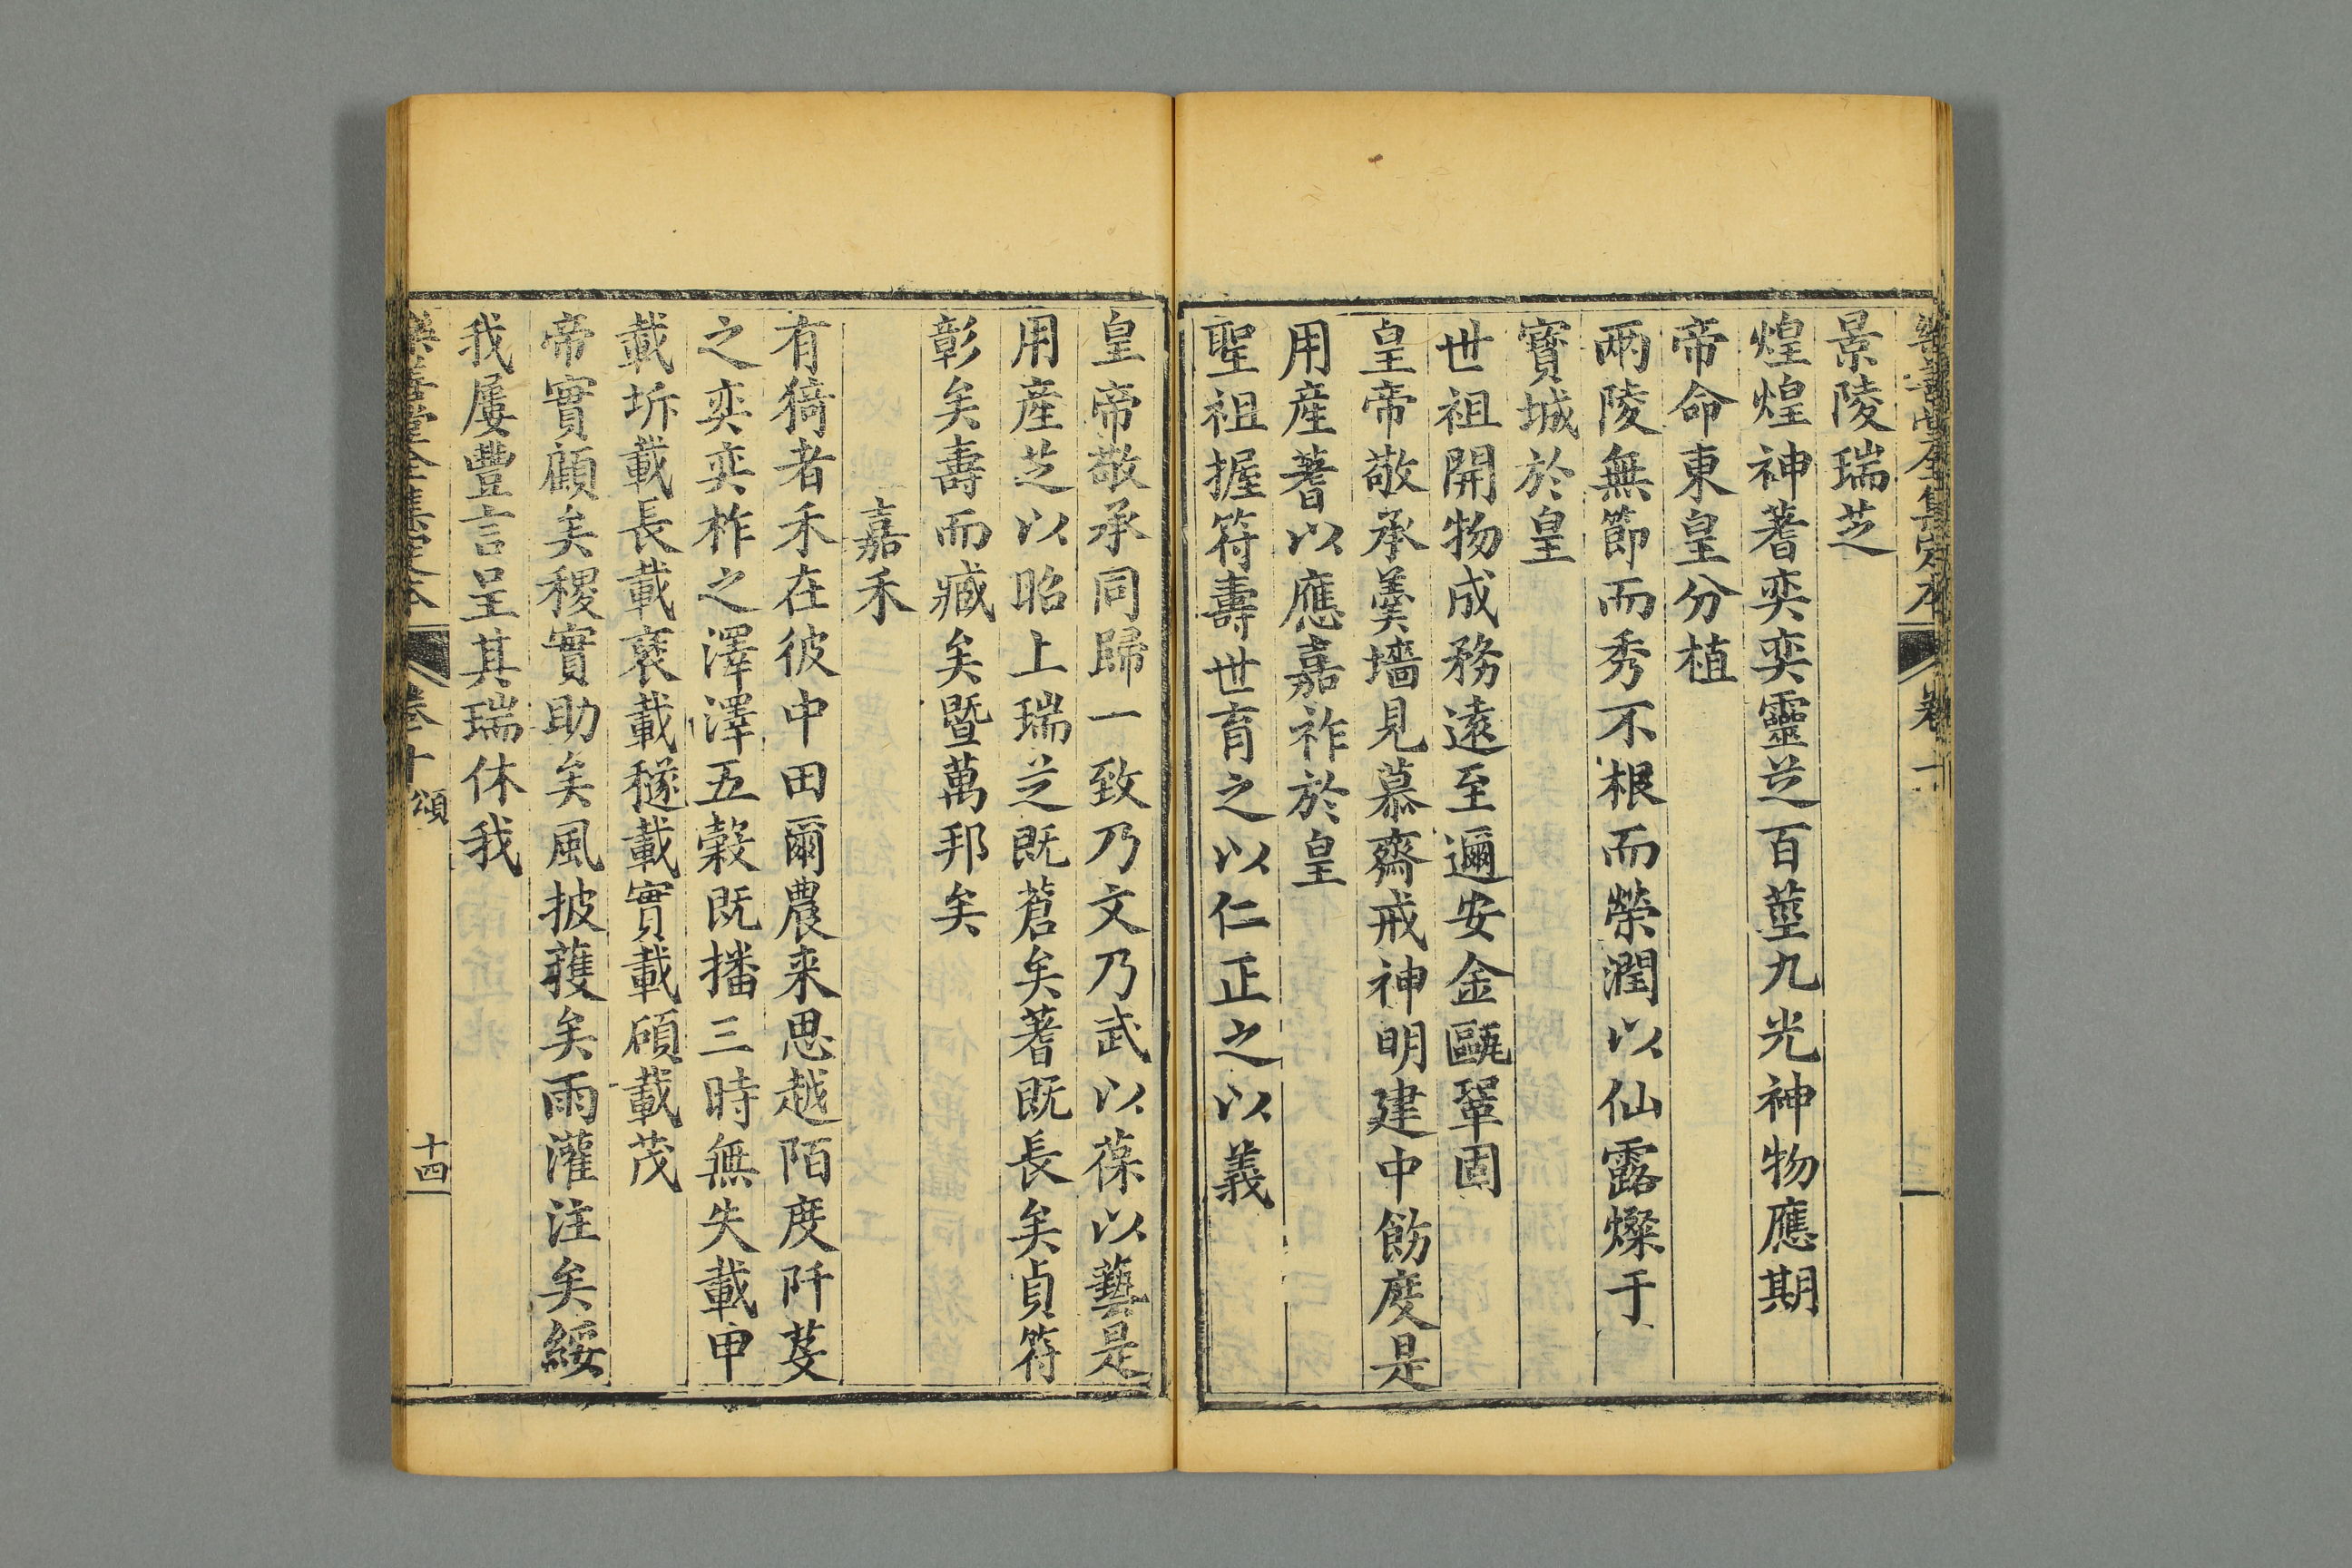 樂善堂全集定本 卷十
景陵瑞芝
煌煌神蓍奕奕靈芝百莖九光神物應期
帝命東皇分植
兩陵無節而秀不根而榮潤以仙露燦于
寶城於皇
世祖開物成務遠至邇安金甌鞏固
皇帝敬承羹墻見慕齋戒神明建中飭度是
用產蓍以應嘉祚於皇
聖祖握符壽世育之以仁正之以義
皇帝敬承同歸一致乃文乃武以葆以藝是
用產芝以昭上瑞芝既蒼矣蓍既長矣貞符
彰矣壽而臧矣暨萬邦矣
嘉禾
有猗者禾在彼中田爾農来思越陌度阡芟
之奕奕柞之澤澤五穀既播三時無失載申
載坼載長載裦載穟載實載碩載茂
帝實顧矣稷實助矣風披蓰矣雨灌注矣綏
我屢豐言呈其瑞休我
樂善堂全集定本 卷十 頌 十四